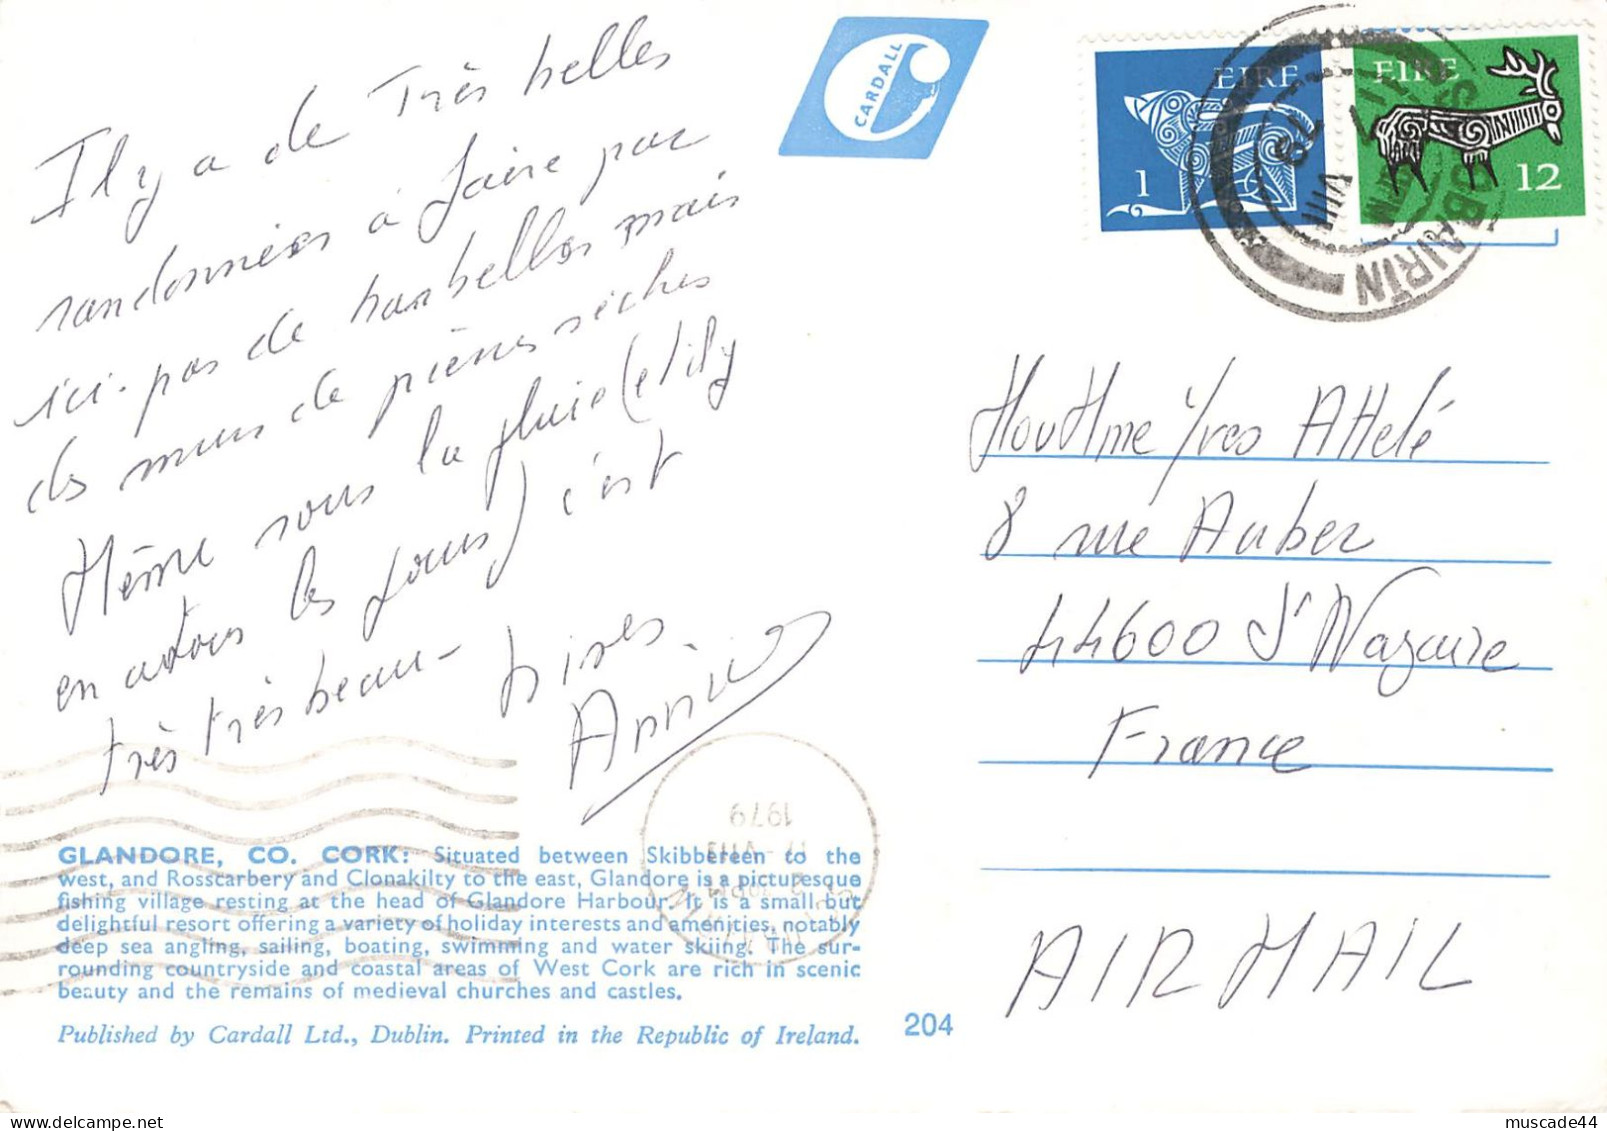 Il y a de Très belles
randonnées à faire par
ici. pas de barbelles mais
des murs de pierres sèches
Même sous la pluie (et il y
en a tous les jours) c'est
très très beau - bises
Annie
CARDALL
EIRE
1
EIRE
12
Yves Attelé
8 rue Auber
44600 St Nazaire
France
AIR MAIL
1979
GLANDORE, CO. CORK: Situated between Skibbereen to the
west, and Rosscarbery and Clonakilty to the east, Glandore is a picturesque
fishing village resting at the head of Glandore Harbour. It is a small but
delightful resort offering a variety of holiday interests and amenities, notably
deep sea angling, sailing, boating, swimming and water skiing. The sur-
rounding countryside and coastal areas of West Cork are rich in scenic
beauty and the remains of medieval churches and castles.
Published by Cardall Ltd., Dublin. Printed in the Republic of Ireland.
204
muscade44